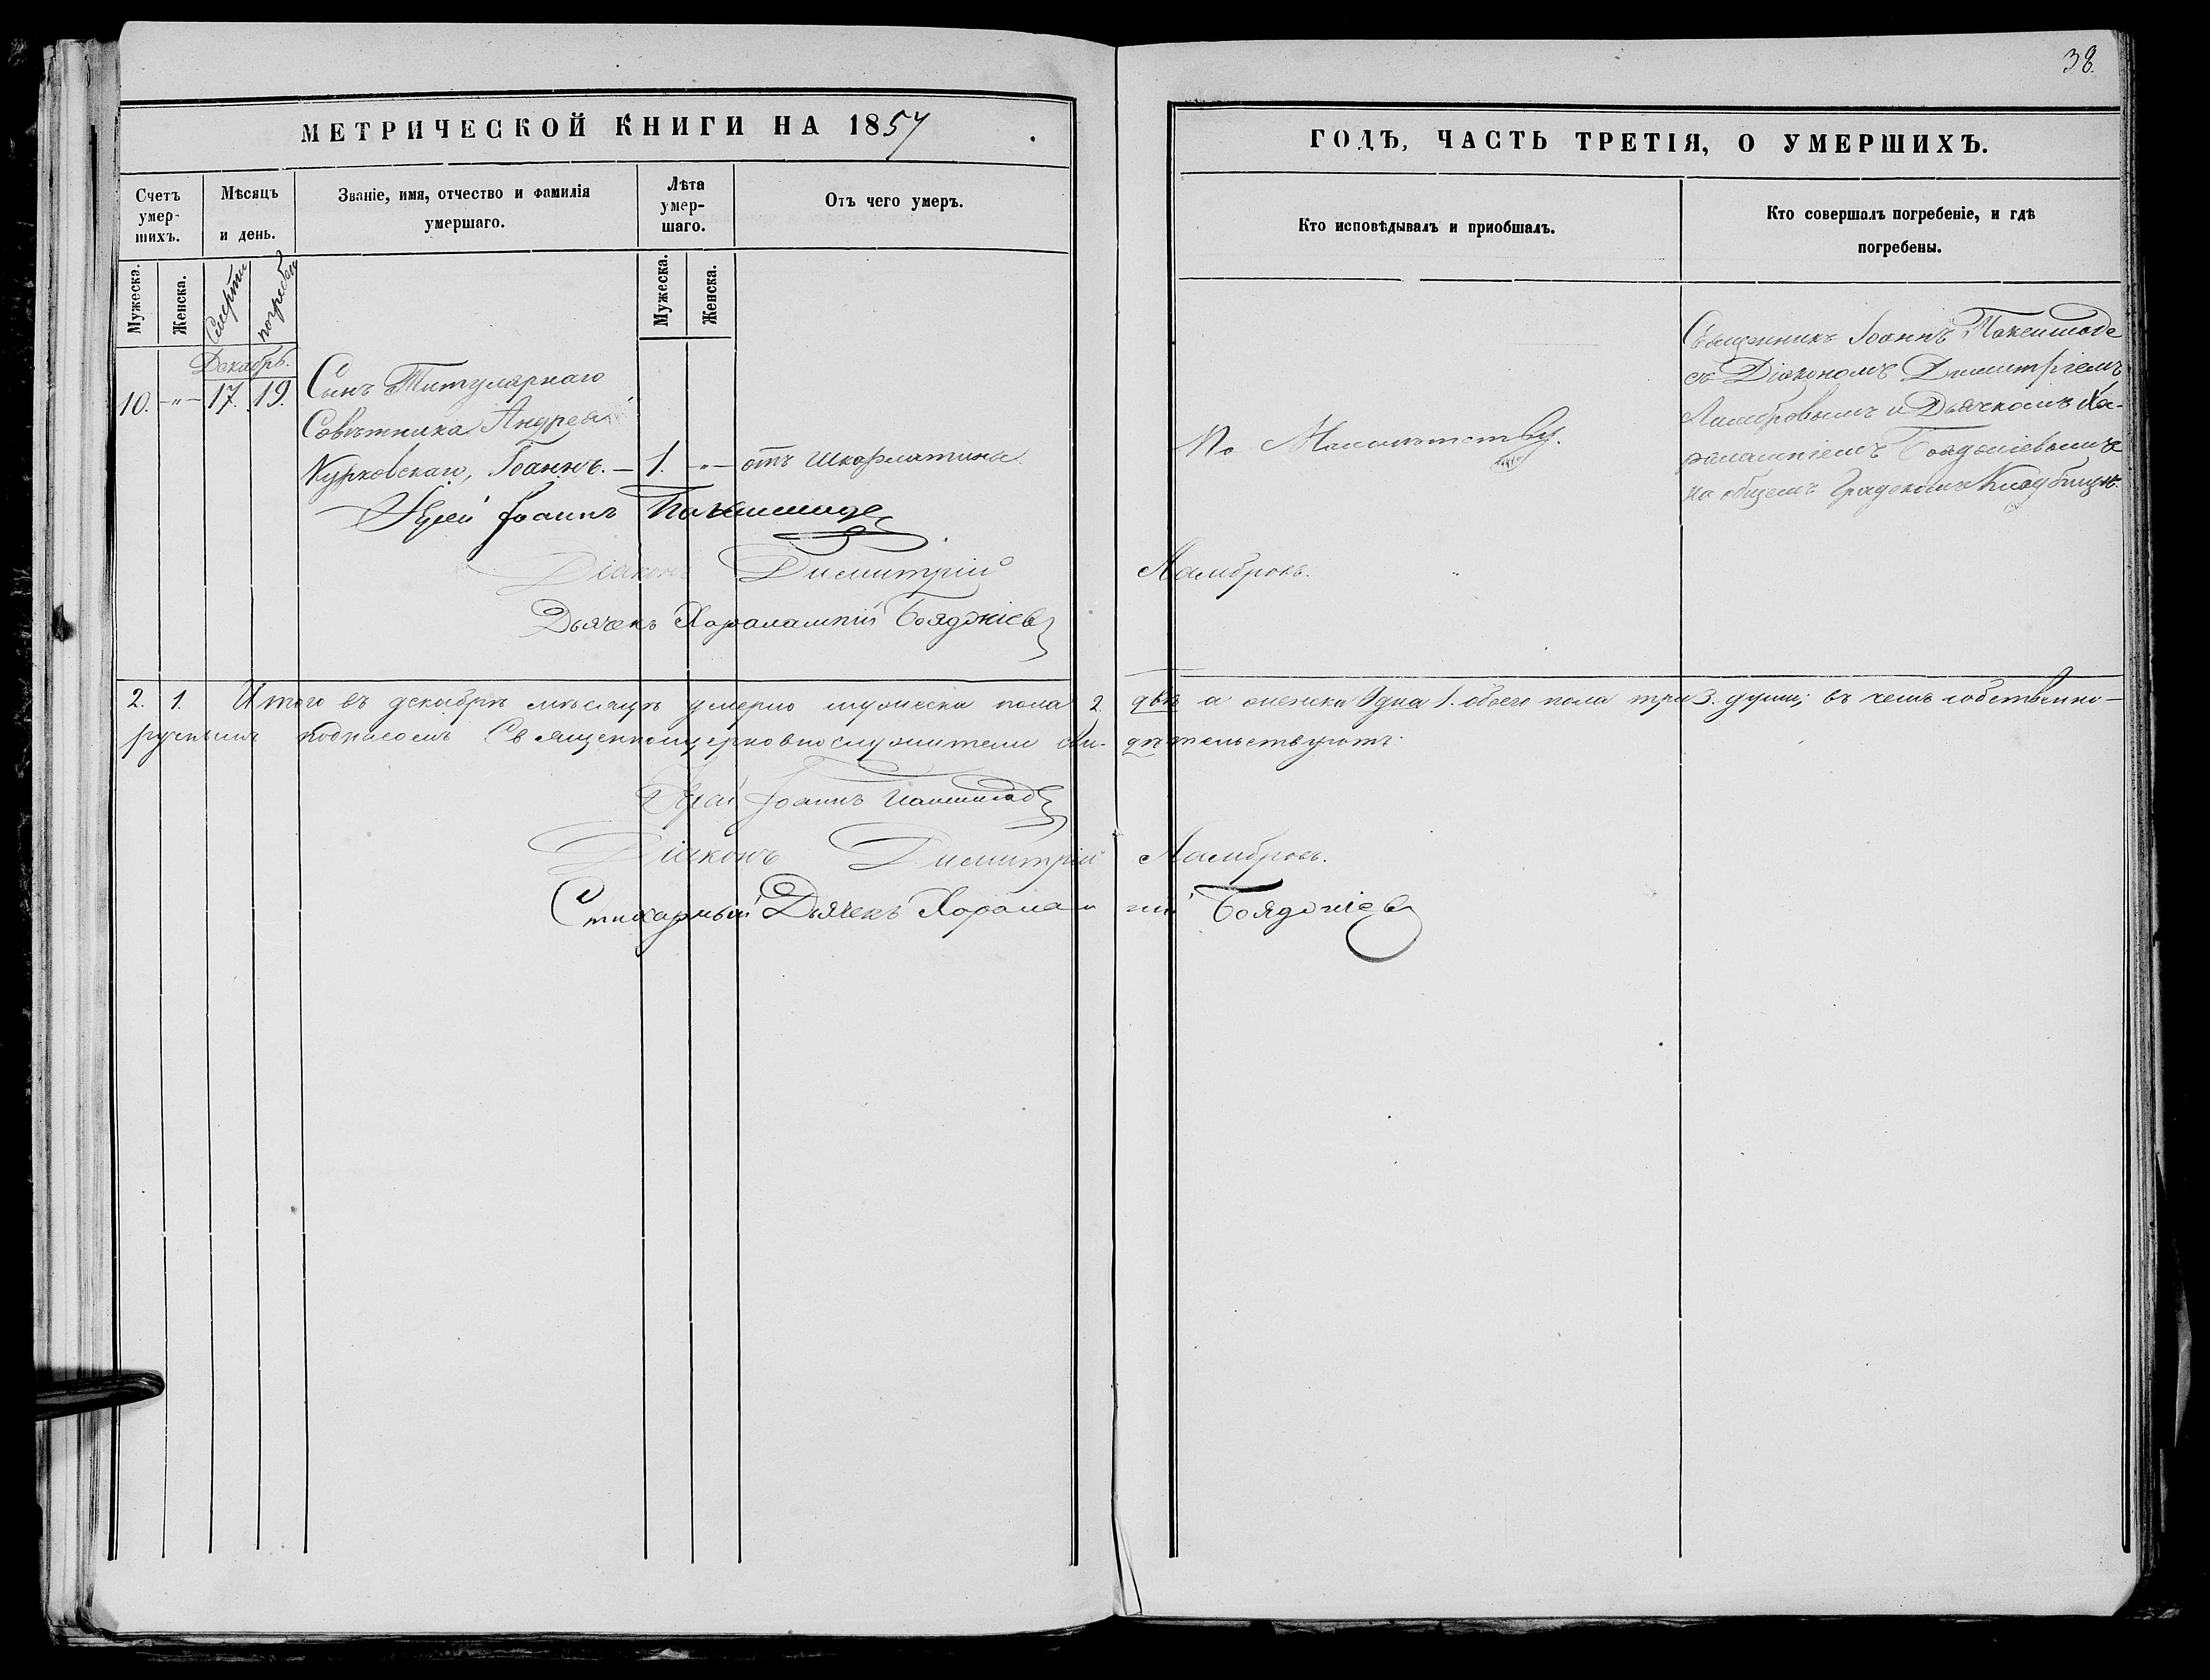 38.
МЕТРИЧЕСКОЙ КНИГИ НА 1857
ГОДЪ, ЧАСТЬ ТРЕТІЯ, О УМЕРШИХЪ.
Счетъ умер-
шихъ.
Мѣсяцъ
и день.
Званіе, имя, отчество и фамилія
умершаго.
Лѣта
умер-
шаго.
Отъ чего умеръ.
Кто исповѣдывалъ и приобшалъ.
Кто совершалъ погребеніе, и гдѣ
погребены.
Мужеска.
Женска.
Смерти
погребен
Мужеска.
Женска.
Декабрь.
10. -"- 17. 19.
Сынъ Титулярнаго
Совѣтника Андрея
Курковскаго, Іоаннъ. — 1. -"- отъ Шкарлатины.
По Малолѣтству.
Священникъ Іоаннъ
съ Діакономъ Димитріемъ
Ламбровымъ и Дьячкомъ Ха-
ралампіемъ Бояджіевымъ
на общемъ Градскомъ Кладбищѣ.
Іерей Іоаннъ
Діаконъ Димитрій Ламбровъ.
Дьячекъ Харалампій Бояджіев
2. 1. Итого въ декабрѣ мѣсяцѣ умерло мужеска пола 2 двѣ а женска Одна 1. обоего пола три 3. души; въ чемъ собственно-
ручнымъ подписомъ Священноцерковнослужители сви- дѣтельствуютъ:
Іерей Іоаннъ
Діаконъ Димитрій Ламбровъ.
Стихарный Дьячекъ Харалам пій Бояджіев